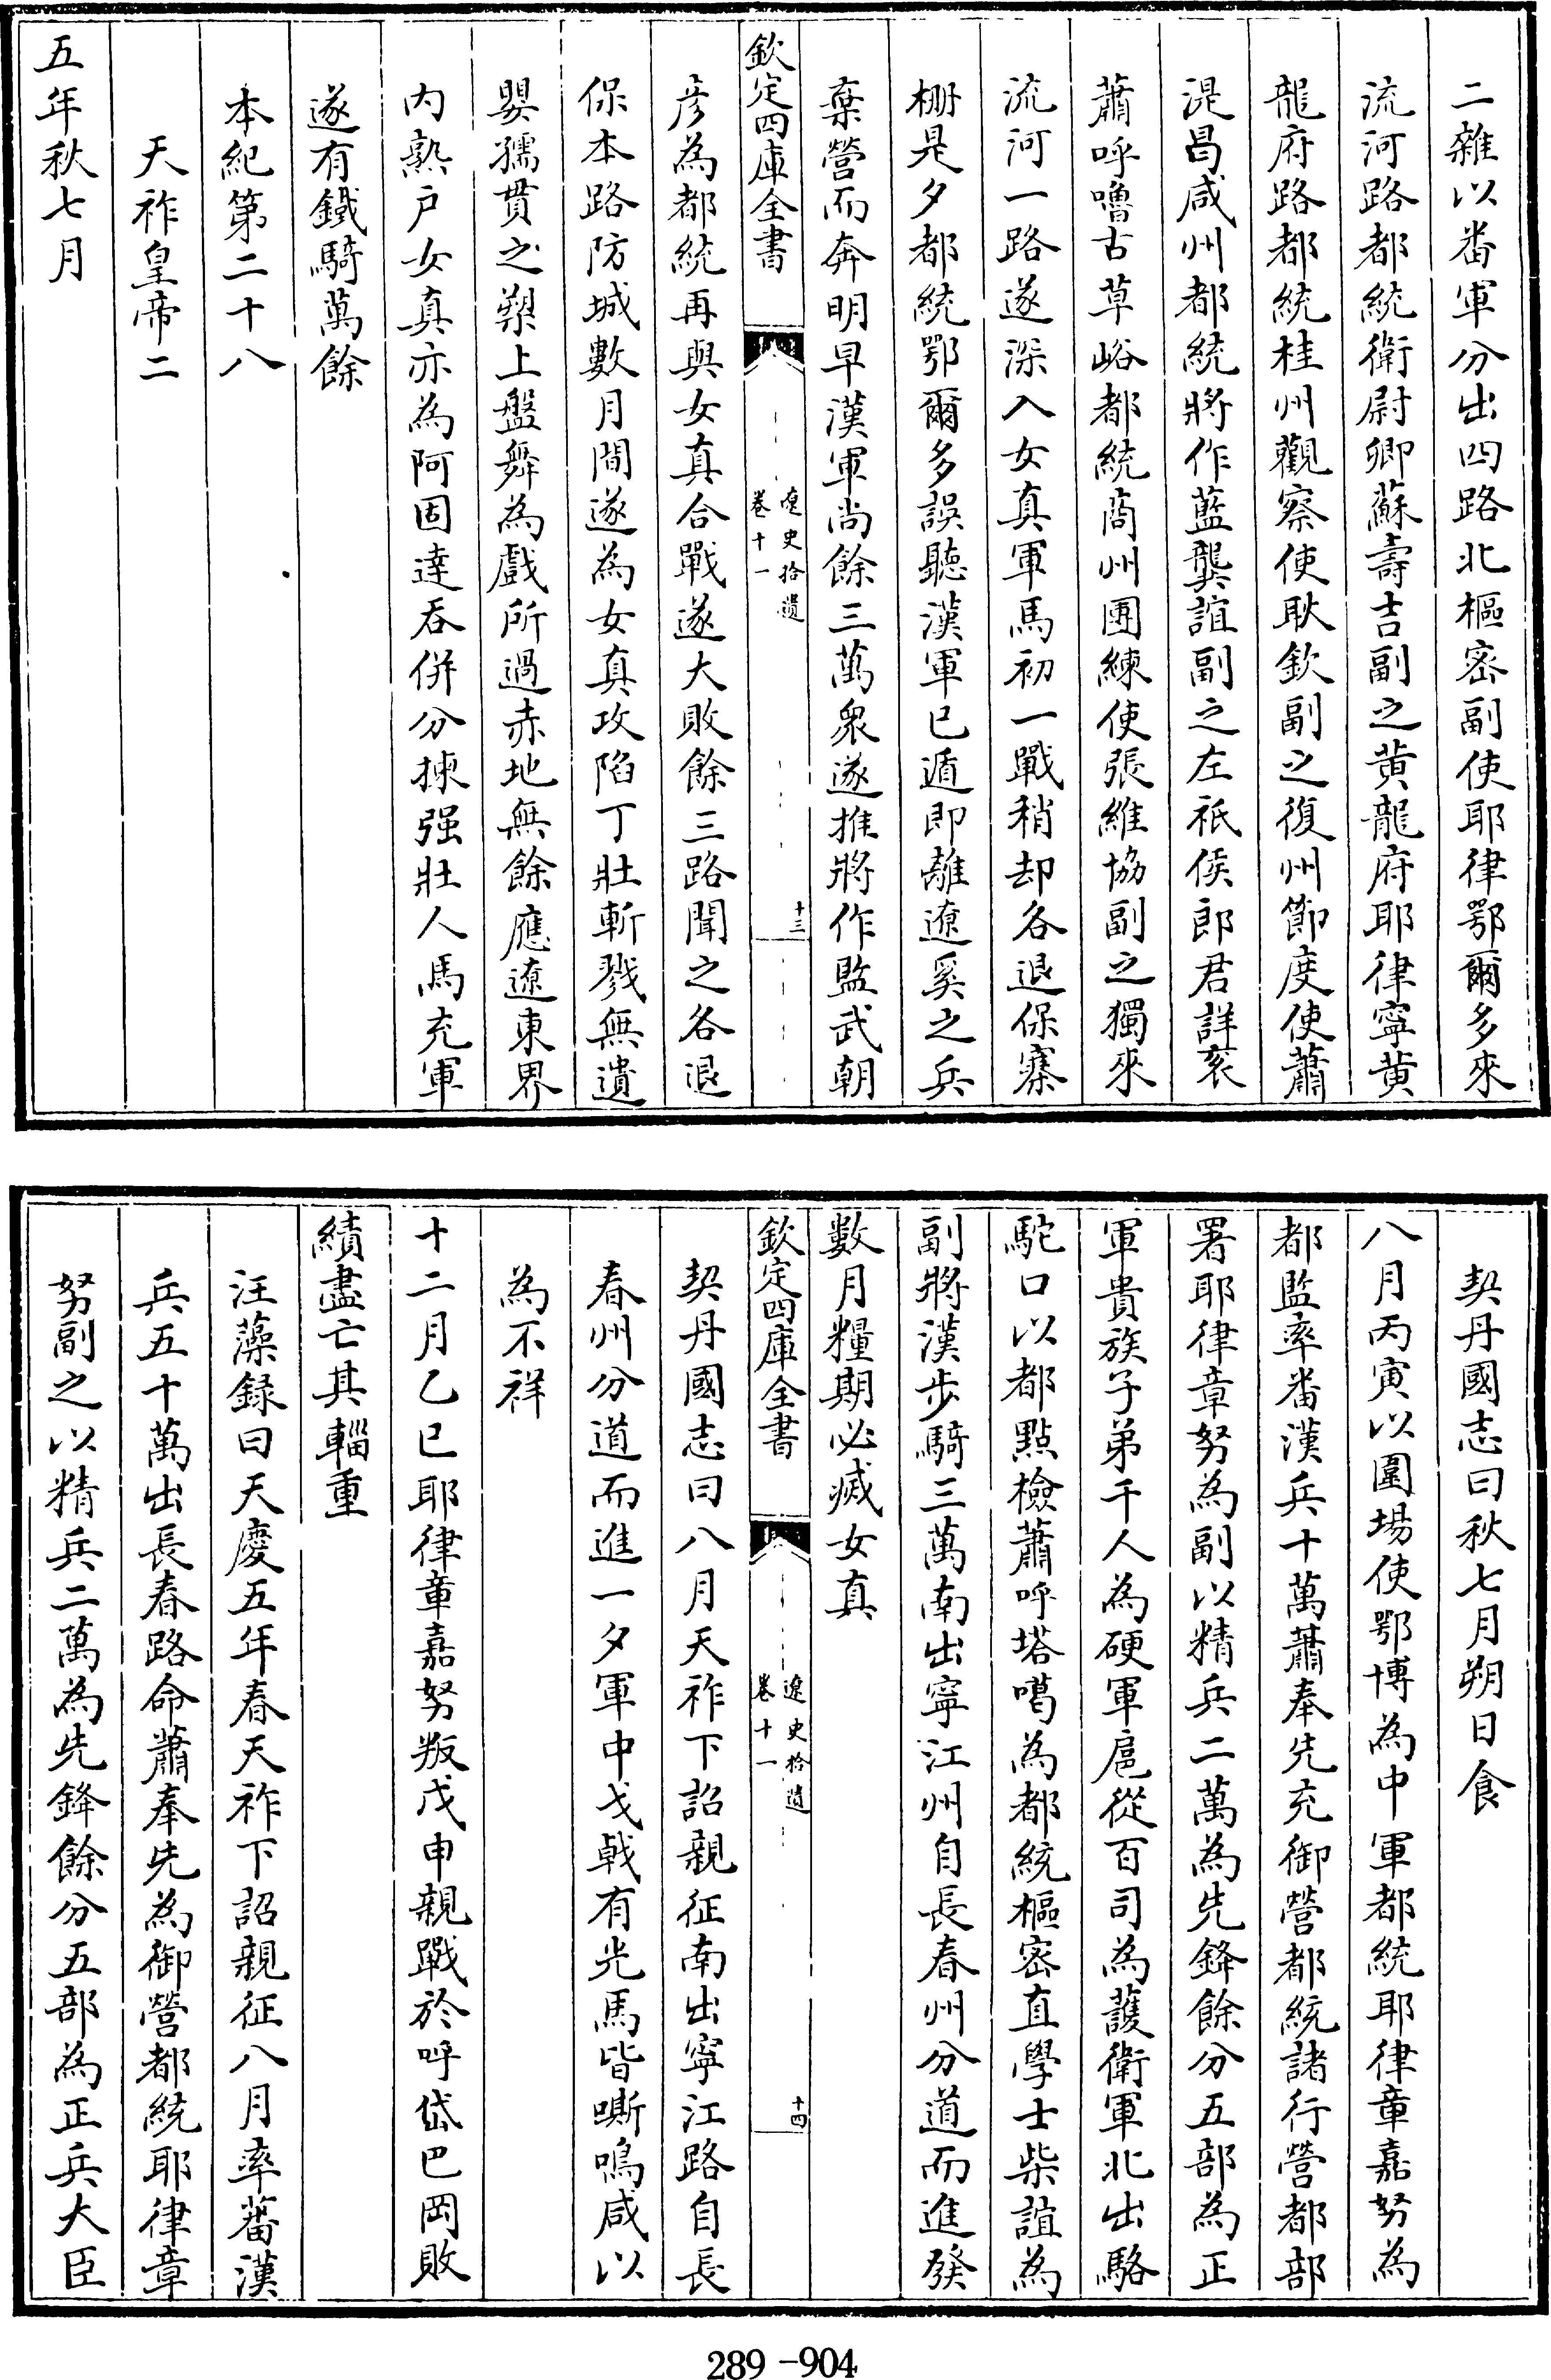 二雜以番軍分出四路北樞密副使耶律鄂爾多來
流河路都統衛尉卿蘇壽吉副之黄龍府耶律寧黄
龍府路都統桂州觀察使耿欽副之復州節度使蕭
湜曷咸州都統將作藍龔誼副之左祇候郎君詳衮
蕭呼嚕古草峪都統商州團練使張維協副之獨來
流河一路遂深入女真軍馬初一戰稍却各退保寨
栅是夕都統鄂爾多誤聽漢軍已遁即離遼奚之兵
棄營而奔明早漢軍尚餘三萬衆遂推將作監武朝
欽定四庫全書
遼史拾遺
卷十一
十三
彦為都統再與女真合戰遂大敗餘三路聞之各退
保本路防城數月間遂為女真攻陷丁壯斬戮無遺
嬰孺貫之槊上盤舞為戲所過赤地無餘應遼東界
内熟户女真亦為阿固達吞併分揀强壯人馬充軍
遂有鐵騎萬餘
本紀第二十八
天祚皇帝二
五年秋七月
契丹國志曰秋七月朔日食
八月丙寅以圍場使鄂博為中軍都統耶律章嘉努為
都監率番漢兵十萬蕭奉先充御營都統諸行營都部
署耶律章努為副以精兵二萬為先鋒餘分五部為正
軍貴族子弟千人為硬軍扈從百司為護衛軍北出駱
駝口以都點檢蕭呼塔噶為都統樞密直學士柴誼為
副將漢步騎三萬南出寧江州自長春州分道而進發
數月糧期必滅女真
欽定四庫全書
遼史拾遺
卷十一
十四
契丹國志曰八月天祚下詔親征南出寧江路自長
春州分道而進一夕軍中戈戟有光馬皆嘶鳴咸以
為不祥
十二月乙巳耶律章嘉努叛戊申親戰於呼岱巴岡敗
績盡亡其輜重
汪藻録曰天慶五年春天祚下詔親征八月率蕃漢
兵五十萬出長春路命蕭奉先為御營都統耶律章
努副之以精兵二萬為先鋒餘分五部為正兵大臣
289-904